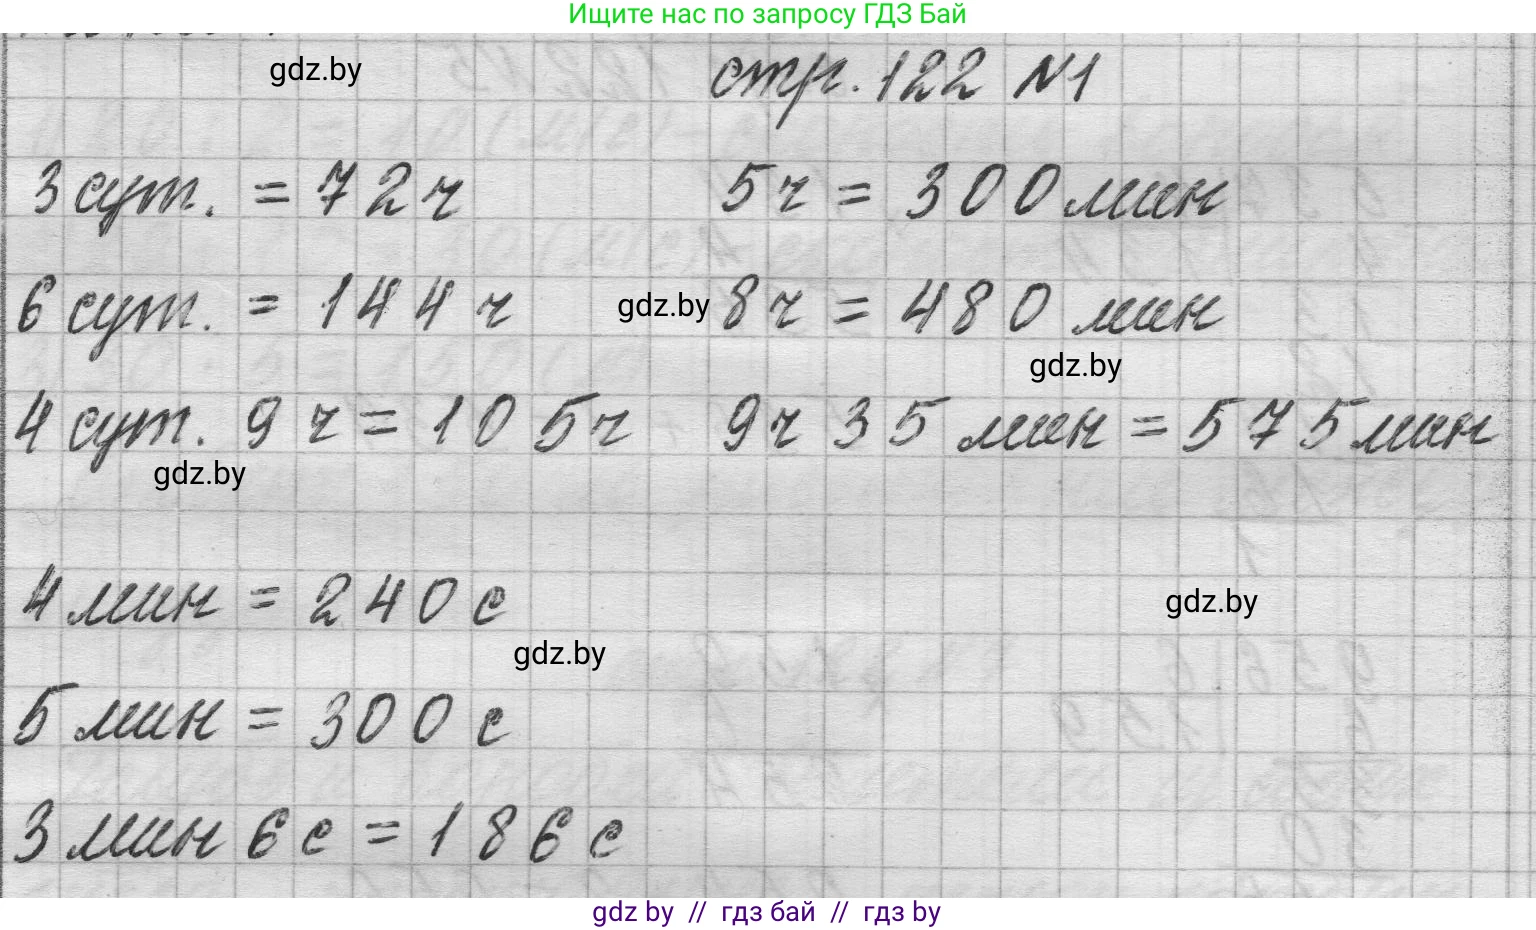 Ищите нас по запросу ГДЗ Бай
gdz.by стр. 122 №1
3 сут. = 72 ч 5 ч = 300 мин
6 сут. = 144 ч gdz.by 8 ч = 480 мин
gdz.by
4 сут. 9 ч = 105 ч 9 ч 35 мин = 575 мин
gdz.by
4 мин = 240 с gdz.by
gdz.by
5 мин = 300 с
3 мин 6 с = 186 с
gdz by // гдз бай // гдз by